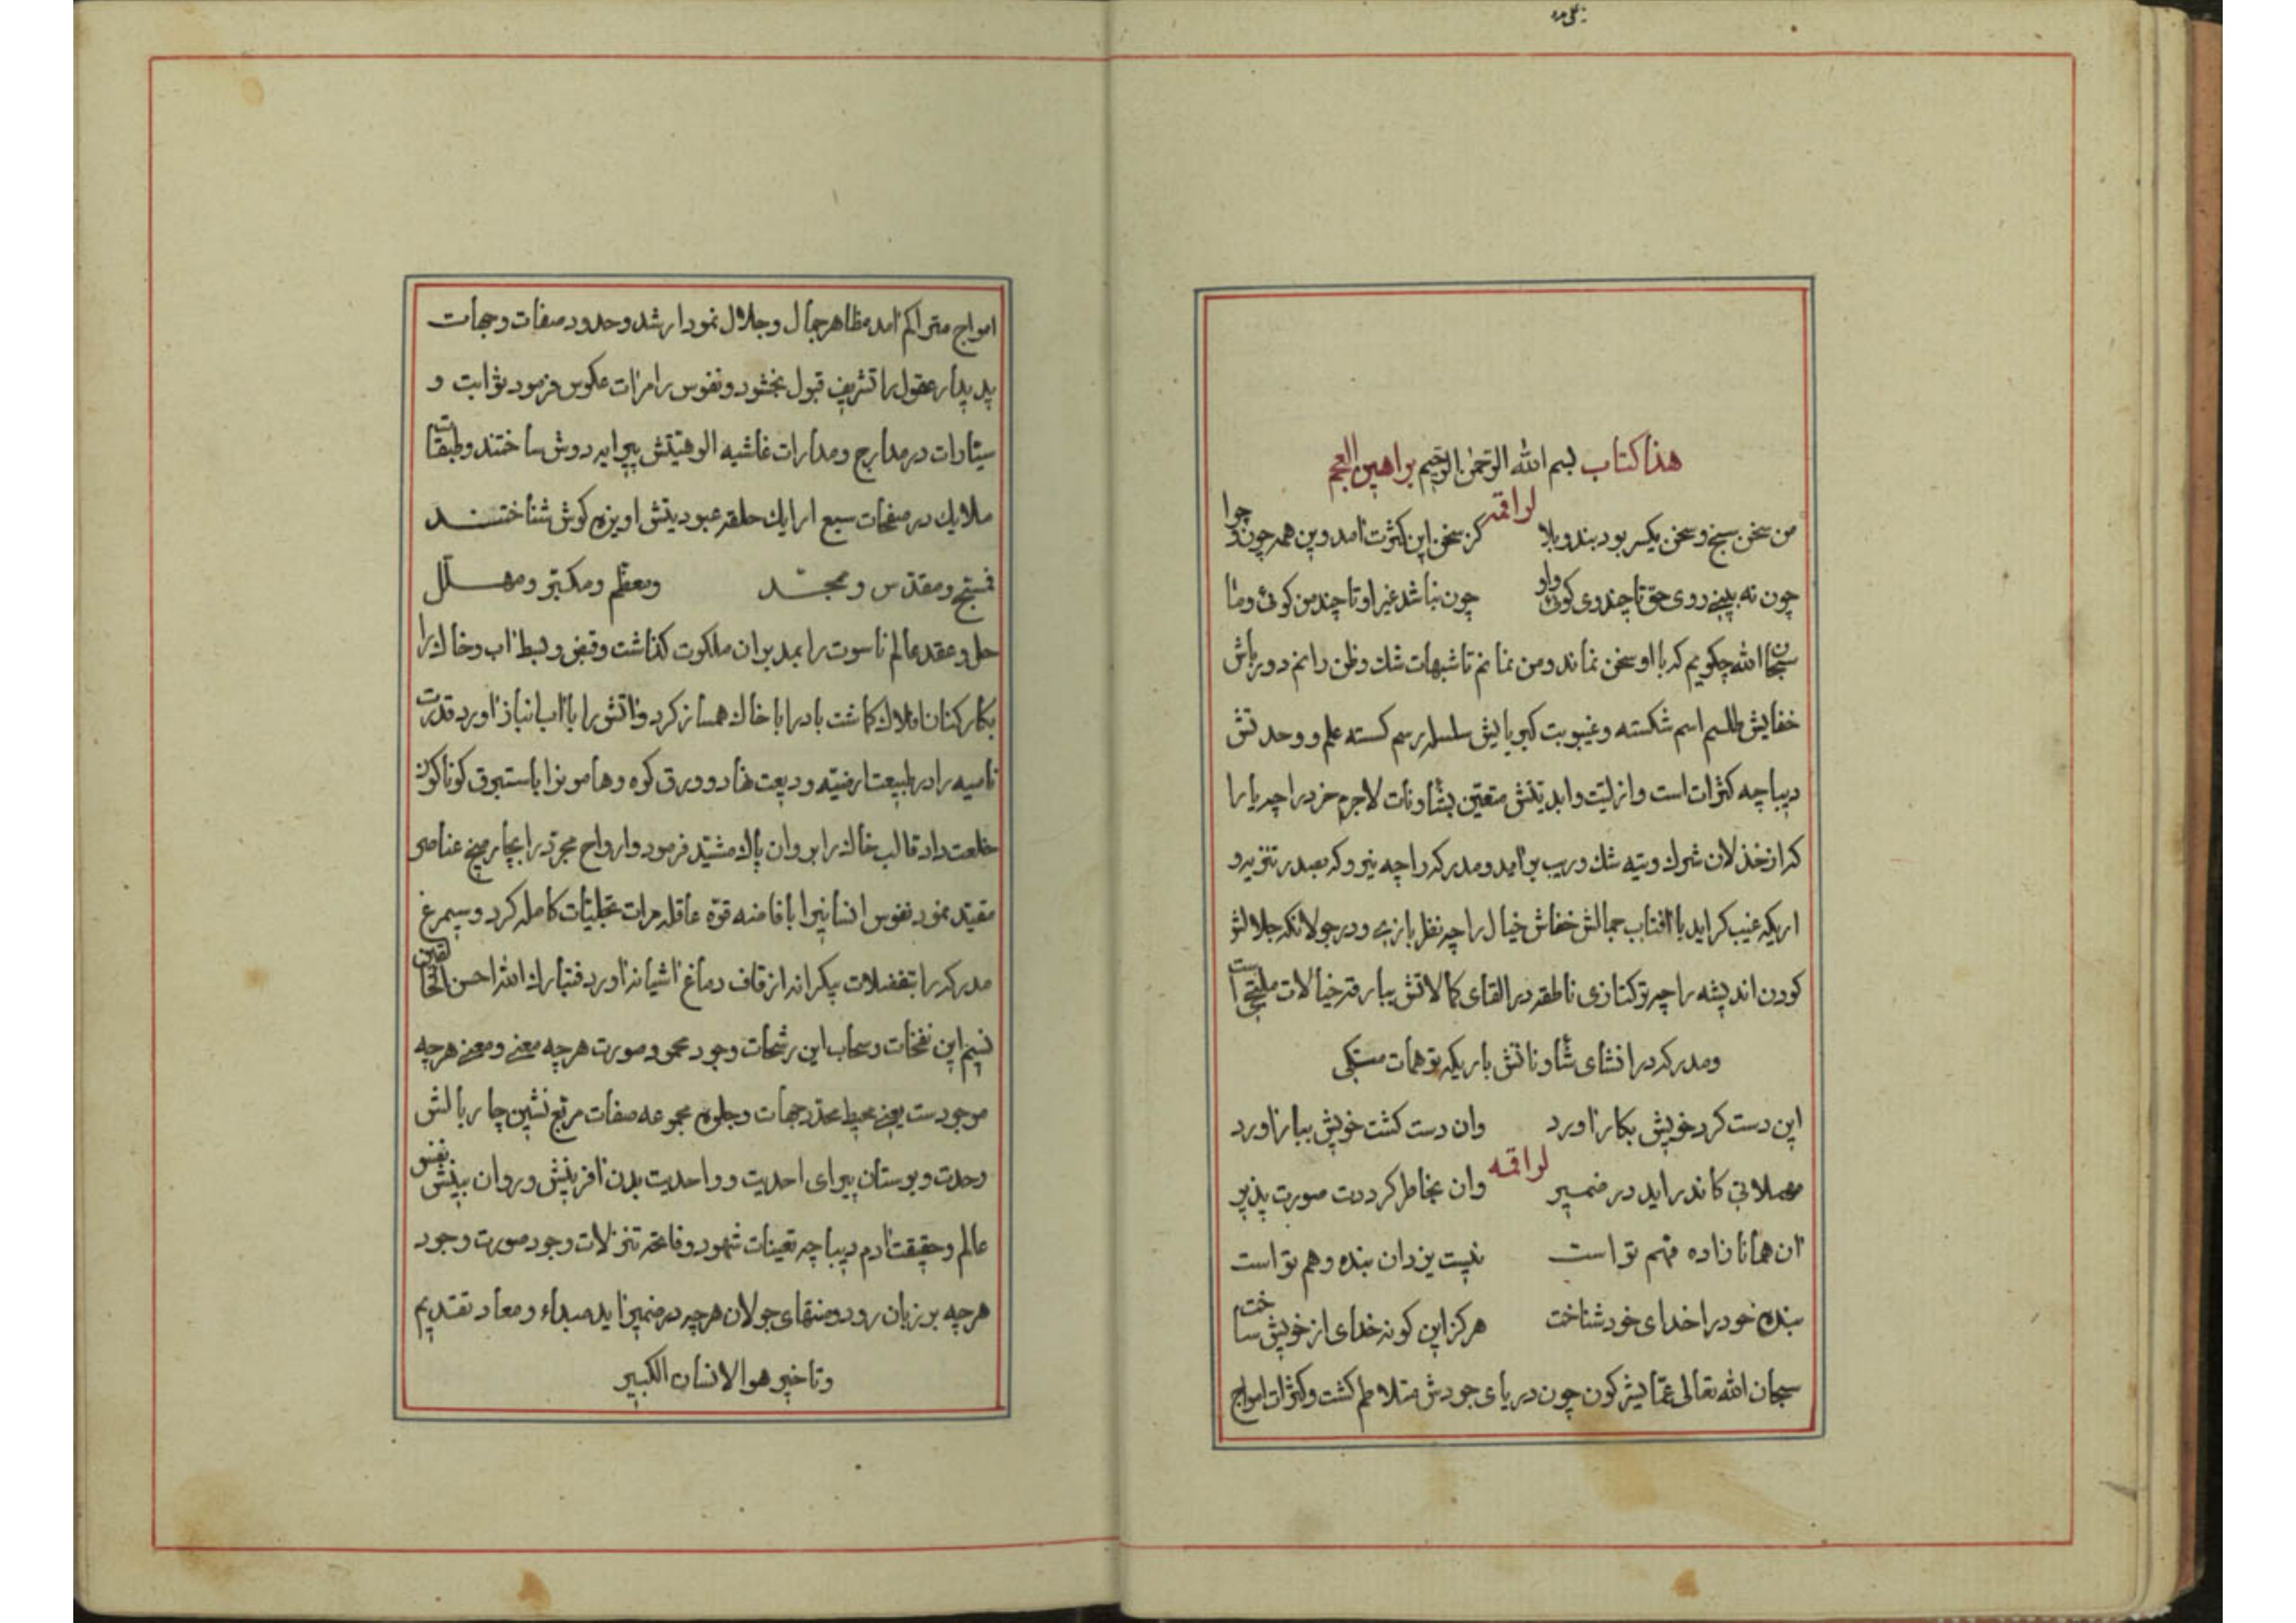 هذا کتاب بسم الله الرحمن الرحیم براهین العجم
لراقمه
من سخن سنج و سخن یکسر بود بند و بلا کز سخن این کثرت امد وین همه چون و چرا
چون نه بینی روی حق تا چند روی کوئی و او چون نباشد غیر او تا چند من کوئی و ما
سبحان الله چکویم که با او سخن نماند و من نمانم تا شبهات شك و ظن رانم دور باش
خفایش طلسم اسم شکسته و غیبوبت کبریایش سلسله رسم کسسته علم و وحدتش
دیباچه کثرات است و ازلیت و ابدیتش متعین بشاونات لاجرم خرد را چه یارا
که از خذلان شرك و تیه شك و ریب برامد و مدرکه را چه نیرو که بصدر تنزیه و
اریکه غیب کراید با افتاب جمالش خفاش خیال را چه نظر بازی و در جولانکه جلالش
کودن اندیشه را چه ترکتازی ناطقه در القای کمالاتش ببارقه خیالات ملتجی است
و مدرکه در انشای شاوناتش باریکه توهمات متکی
این دست کرد خویش بکار اورد وان دست کشت خویش ببار اورد
لراقمه
مهملاتی کاندر اید در ضمیر وان بخاطر کرددت صورت پذیر
ان همانا زاده فهم تو است نیست یزدان بنده وهم تو است
بنده خود را خدای خود شناخت هرکز این کونه خدای از خویش ساخت
سبحان الله تعالی عما یشرکون چون دریای جودش متلاطم کشت و کثرات امواج
امواج متراکم امد مظاهر جمال و جلال نمودار شد و حدود صفات و جهات
پدیدار عقول را تشریف قبول بخشود و نفوس را مرات عکوس فرمود ثوابت و
سیارات در مدارج و مدارات غاشیه الوهیتش پیرایه دوش ساختند و طبقات
ملایك در صفحات سبع ارایك حلقه عبودیتش اویزه کوش شناختند
فمسبح و مقدس و ممجد و معظم و مکبر و مهلل
حل و عقد عالم ناسوت را بمدبران ملکوت کذاشت و قبض و بسط اب و خاك را
بکارکنان افلاك کماشت باد را با خاك همساز کرد و اتش را با اب انباز اورد قدرت
نامیه را در طبیعت ارضیه ودیعت نهاد و ورق کوه و هامونرا باستبرق کوناکون
خلعت داد قالب خاك را بروان پاك مشید فرمود و ارواح مجرد را بچار میخ عناصر
مقید نمود نفوس انسانیرا بافاضه قوه عاقله مرات تجلیات کامله کرد و سیمرغ
مدرکه را بتفضلات بیکرانه از قاف دماغ اشیانه اورد فتبارك الله احسن الخالقین
نسیم این نفحات و سحاب این رشحات وجود محمود صورت هرچه معنی و معنی هرچه
موجودست یعنی محیط محدد جهات و جلوه مجموعه صفات مربع نشین چار بالش
وحدت و بوستان پیرای احدیت و واحدیت بدن افرینش و روان بینش نفس
عالم و حقیقت ادم دیباچه تعینات شهود و فاتحه تنزلات وجود صورت وجود
هرچه بر زبان رود و منتهای جولان هرچه در ضمیر اید مبداء و معاد تقدیم
و تاخیر هو الانسان الکبیر